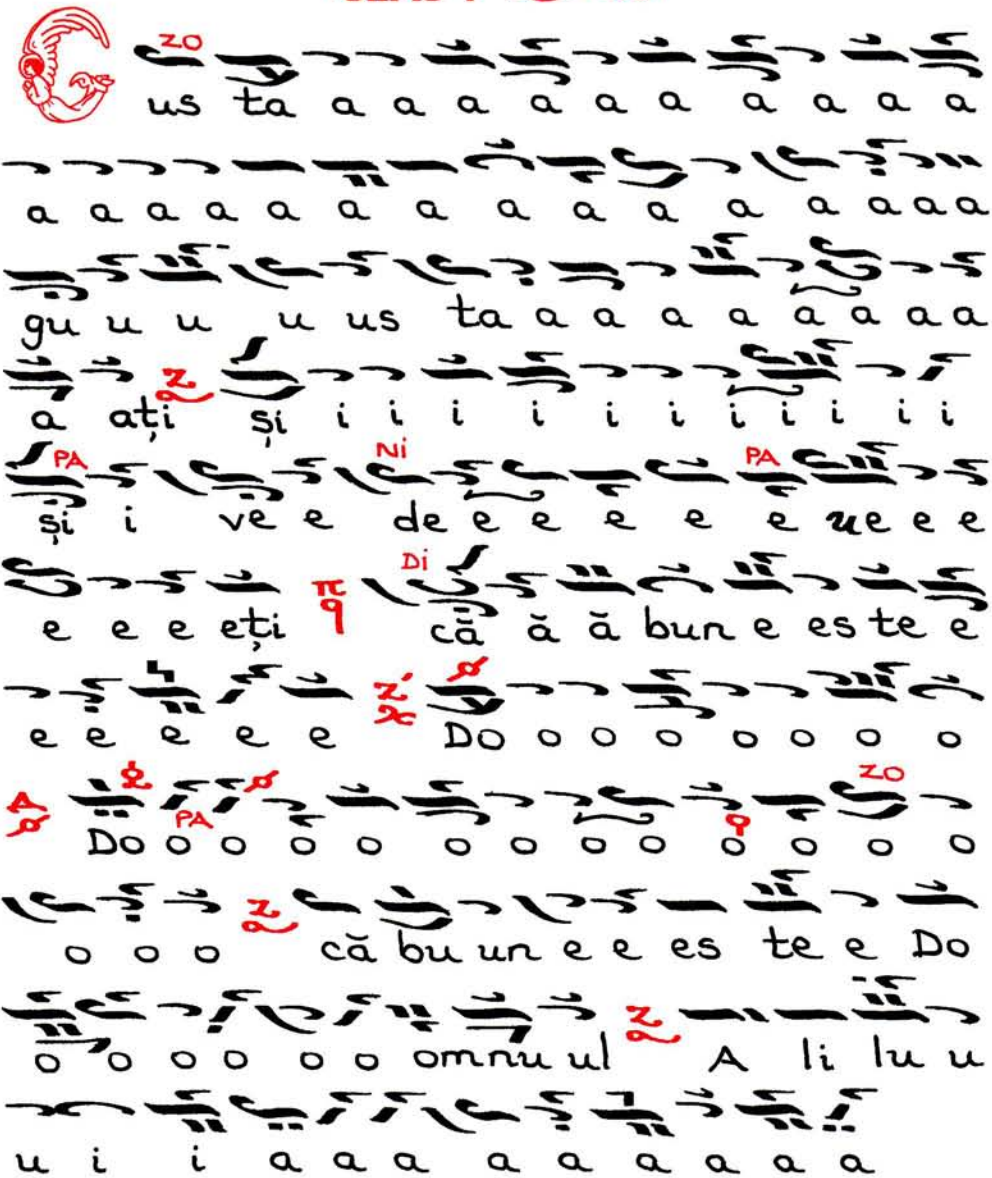 ZO
us ta a a a a a a a a a a
a a a a a a a a a a a a a a a
gu u u u us ta a a a a a a a a
a ați și i i i i i i i i i i
PA Ni PA
și i ve e de e e e e e ue e e
Di
e e e eți că ă ă bun e es te e
e e e e e Do o o o o o o o
ZO
PA
Do o o o o o o o o o o o o
o o o că bu un e e es te e Do
o o o o o o omnu ul A li lu u
u i i a a a a a a a a a